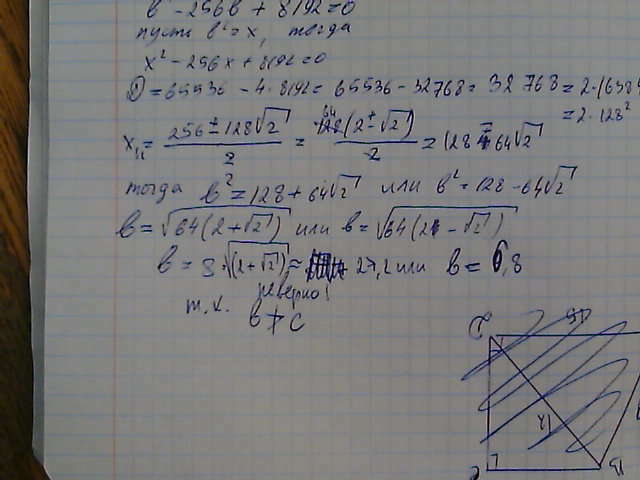 b⁴ - 256b² + 8192 = 0
пусть b² = x, тогда
x² - 256x + 8192 = 0
D = 65536 - 4·8192 = 65536 - 32768 = 32768 = 2·(16384
= 2·128²
x₁,₂ = (256 ± 128√2)/2 = 64 (2 ± √2)/2 = 128 ± 64√2
тогда b² = 128 + 64√2 или b² = 128 - 64√2
b = √64(2 + √2) или b = √64(2 - √2)
b = 8·√(2 + √2) ≈ 27,2 или b = 6,8
неверно!
т.к. b > c